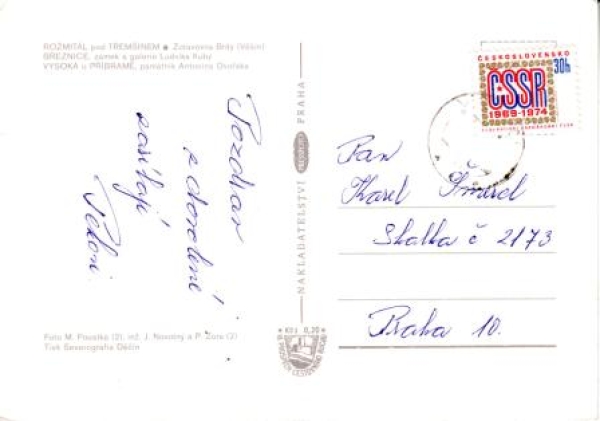 ROŽMITÁL pod TŘEMŠÍNEM ● Zotavovna Brdy (Věšín)
BŘEZNICE, zámek s galerií Ludvíka Kuby
VYSOKÁ u PŘÍBRAMĚ, památník Antonína Dvořáka
Pozdrav
z dovolené
zasílají
NAKLADATELSTVÍ
PRAHA
ČESKOSLOVENSKO
30h
ČSSR
1969-1974
Pan
Karel
Skalka č 2173
Praha 10.
Kčs 0,20
Foto M. Pavelka (2), inž. J. Novotný a P. Zora (2)
Tisk Severografia Děčín